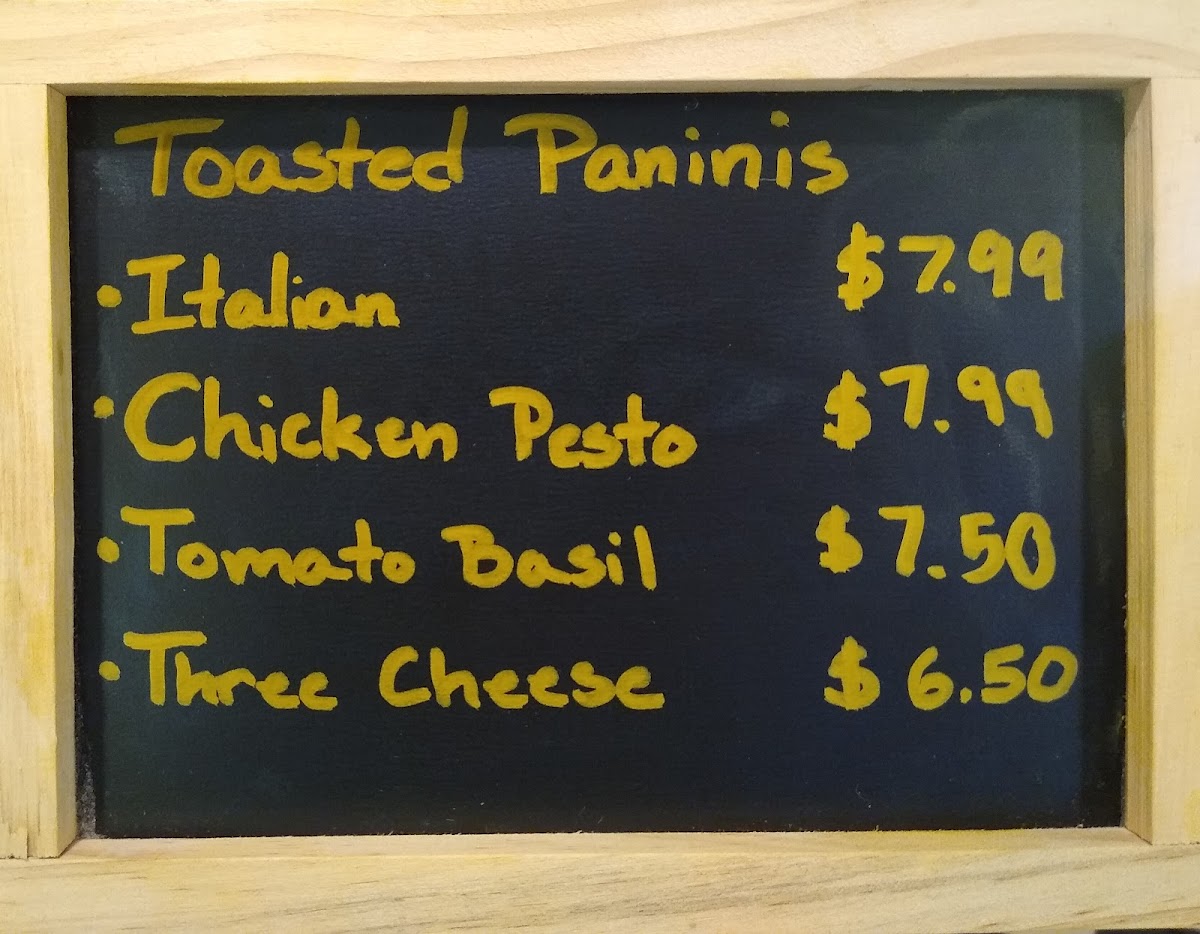 Toasted Paninis
• Italian $7.99
• Chicken Pesto $7.99
• Tomato Basil $7.50
• Three Cheese $6.50